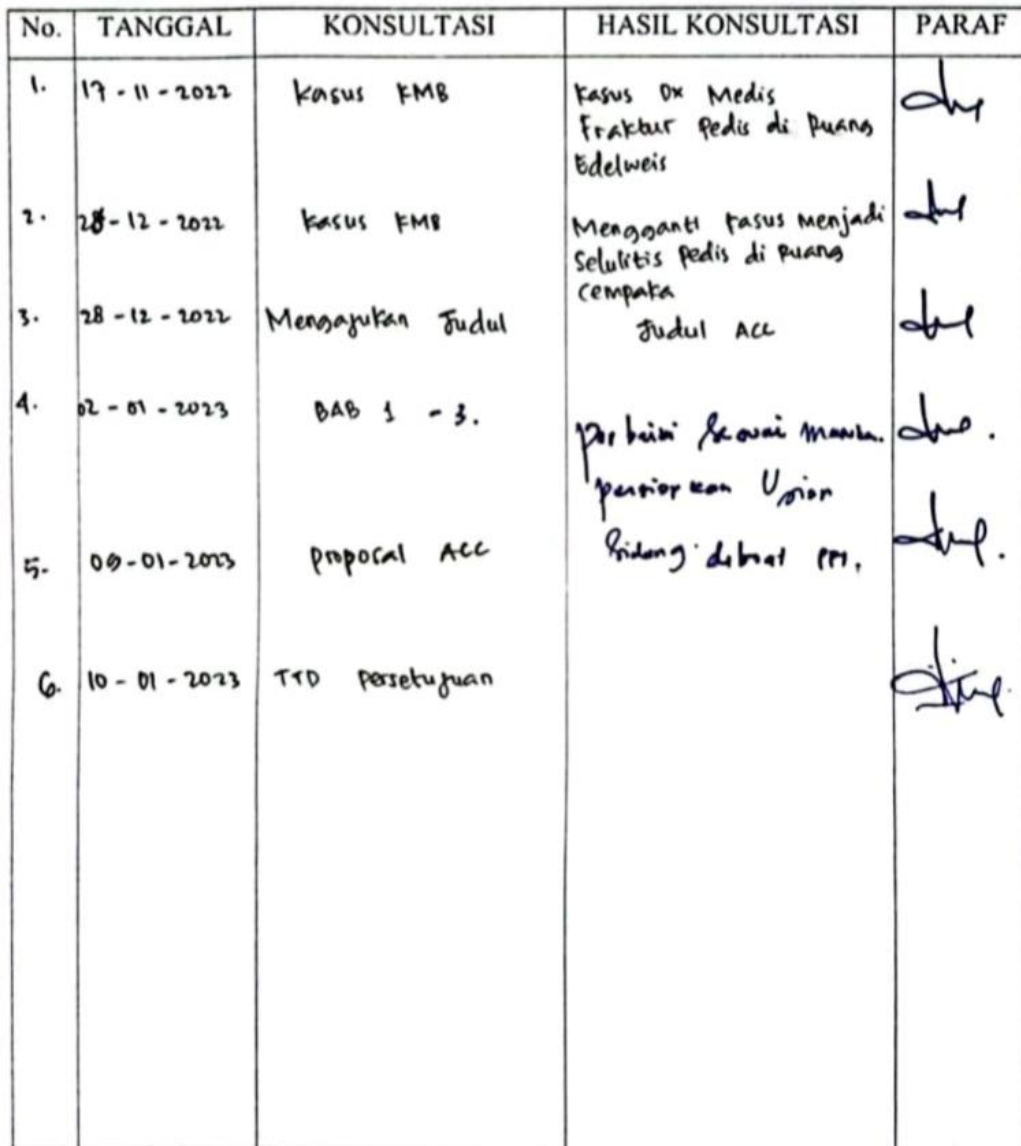 No. TANGGAL KONSULTASI HASIL KONSULTASI PARAF
1. 17 - 11 - 2022 Kasus KMB Kasus Dx Medis
Fraktur Pedis di Ruang
Edelweis
2. 28 - 12 - 2022 Kasus KMB Mengganti kasus menjadi
Selulitis Pedis di Ruang
Cempaka
3. 28 - 12 - 2022 Mengajukan Judul Judul ACC
4. 02 - 01 - 2023 BAB 1 - 3.
5. 09 - 01 - 2023 Proposal ACC
6. 10 - 01 - 2023 TTD Persetujuan